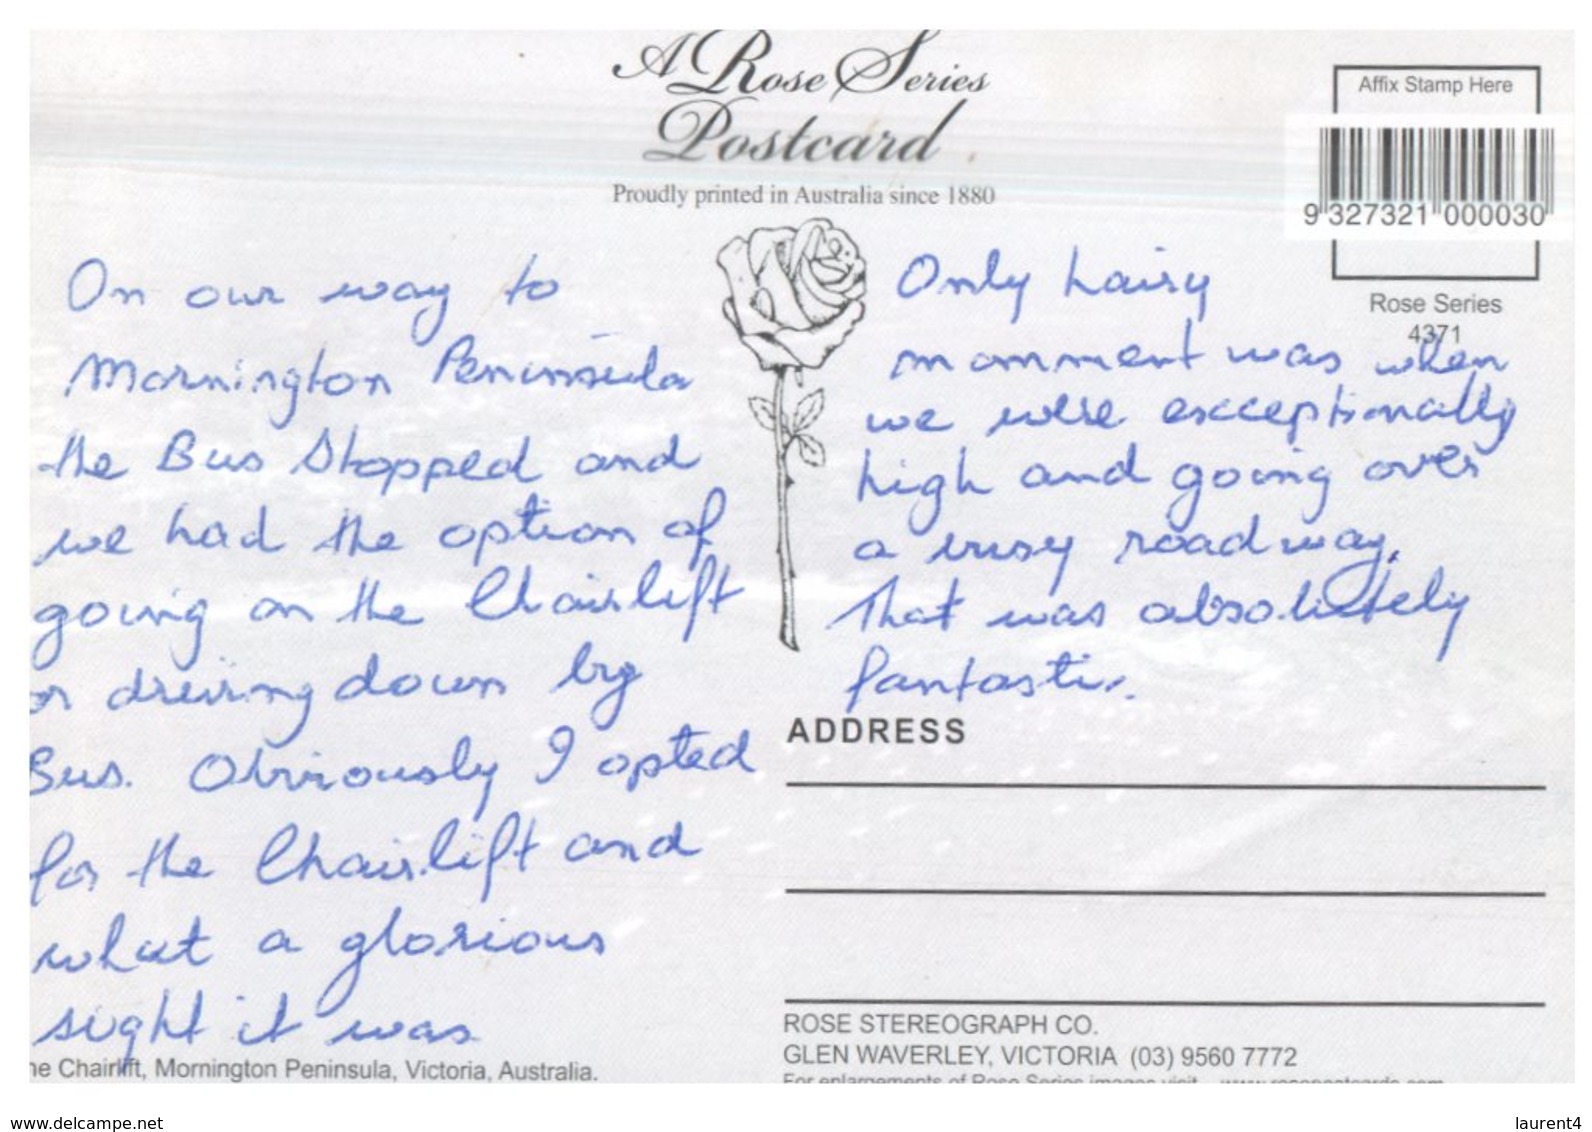 A Rose Series
Postcard
Proudly printed in Australia since 1880
Affix Stamp Here
9 327321 000030
Rose Series
4371
On our way to
Mornington Peninsula
the Bus Stopped and
we had the option of
going on the Chairlift
or driving down by
Bus. Obviously I opted
for the Chairlift and
what a glorious
sight it was
Only hairy
momment was when
we were excceptionally
high and going over
a busy roadway.
That was absolutely
fantastic.
ADDRESS
ROSE STEREOGRAPH CO.
GLEN WAVERLEY, VICTORIA (03) 9560 7772
For enlargements of Rose Series images visit www.rosepostcards.com
he Chairlift, Mornington Peninsula, Victoria, Australia.
www.delcampe.net
laurent4